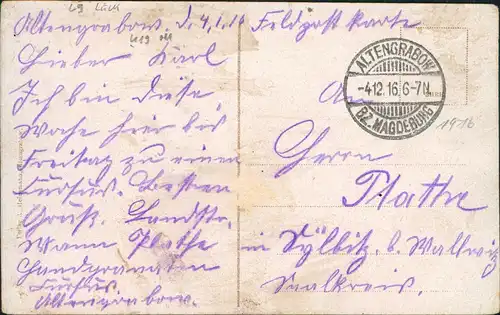 Altengrabow, d. 4.1.16
Lieber Karl
Ich bin diese
Woche hier bis
Freitag zu einem
Kursus. Besten
Gruß. Landstr.
Mann Plathe
Handgranaten
Kursus
Altengrabow.
Feldpostkarte
ALTENGRABOW
-4.12.16.6-7N.
BZ. MAGDEBURG
1916
An
Herrn
Plathe
in Sylbitz b. Wallwitz
Saalkreis.